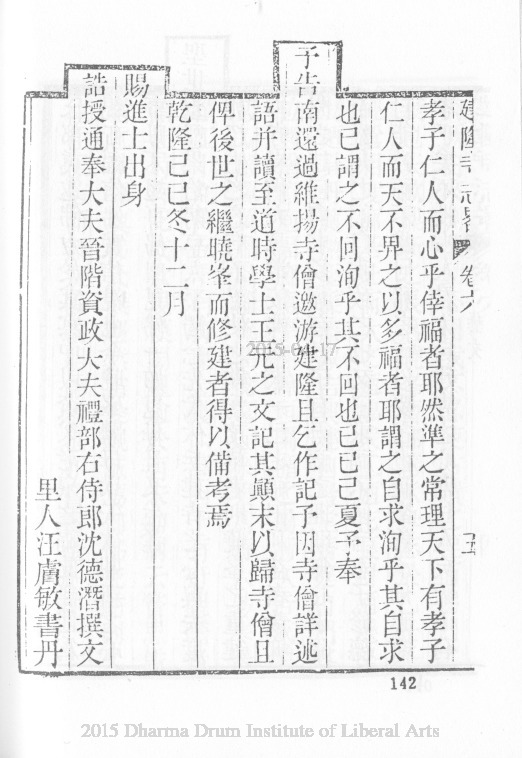 建隆寺志畧 卷六 五
孝子仁人而心乎倖福者耶然準之常理天下有孝子
仁人而天不畀之以多福者耶謂之自求洵乎其自求
也已謂之不回洵乎其不回也已己巳夏予奉
予告南還過維揚寺僧邀游建隆且乞作記予因寺僧詳述
語并讀至道時學士王元之文記其顛末以歸寺僧且
俾後世之繼曉峯而修建者得以備考焉
乾隆己巳冬十二月
賜進士出身
誥授通奉大夫晉階資政大夫禮部右侍郎沈德潛撰文
里人汪膚敏書丹
142
2015 Dharma Drum Institute of Liberal Arts